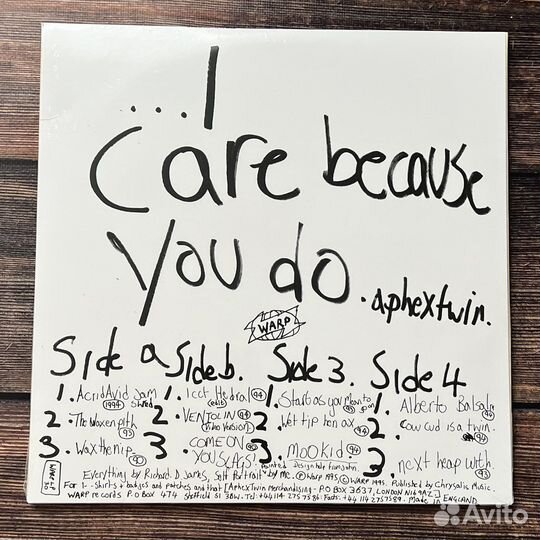 ...I
Care because
you do.
aphextwin.
WARP
Side a
1. Acrid Avid Jam
Shred
1994
2. The waxen pith
93
3. Wax the nip
90
Side b.
1. Icct Hedral 94
(edit)
2. VENTOLIN 94
(Video Version)
3. COME ON
YOU SLAGS!
90
Side 3.
1. Start as you mean to
go on 93
2. Wet tip hen ax 94
3. Mookid 94
Side 4
1. Alberto Balsalm
94
2. Cow cud is a twin.
94
3. next heap with.
93
WARP LP
30
Painted Design help from john.
Everything by Richard. D. James, Self Portrait by me. ℗ Warp 1995 © WARP 1995. Published by Chrysalis Music.
For t-Shirts & badges and patches and that [AphexTwin Merchandising - P.O BOX 3637, LONDON N16 9AZ]
WARP records P O BOX 474 Sheffield S1 3BW. Tel: +44 114 2757586. Facts: +44 114 2757589. Made in ENGLAND.
Avito